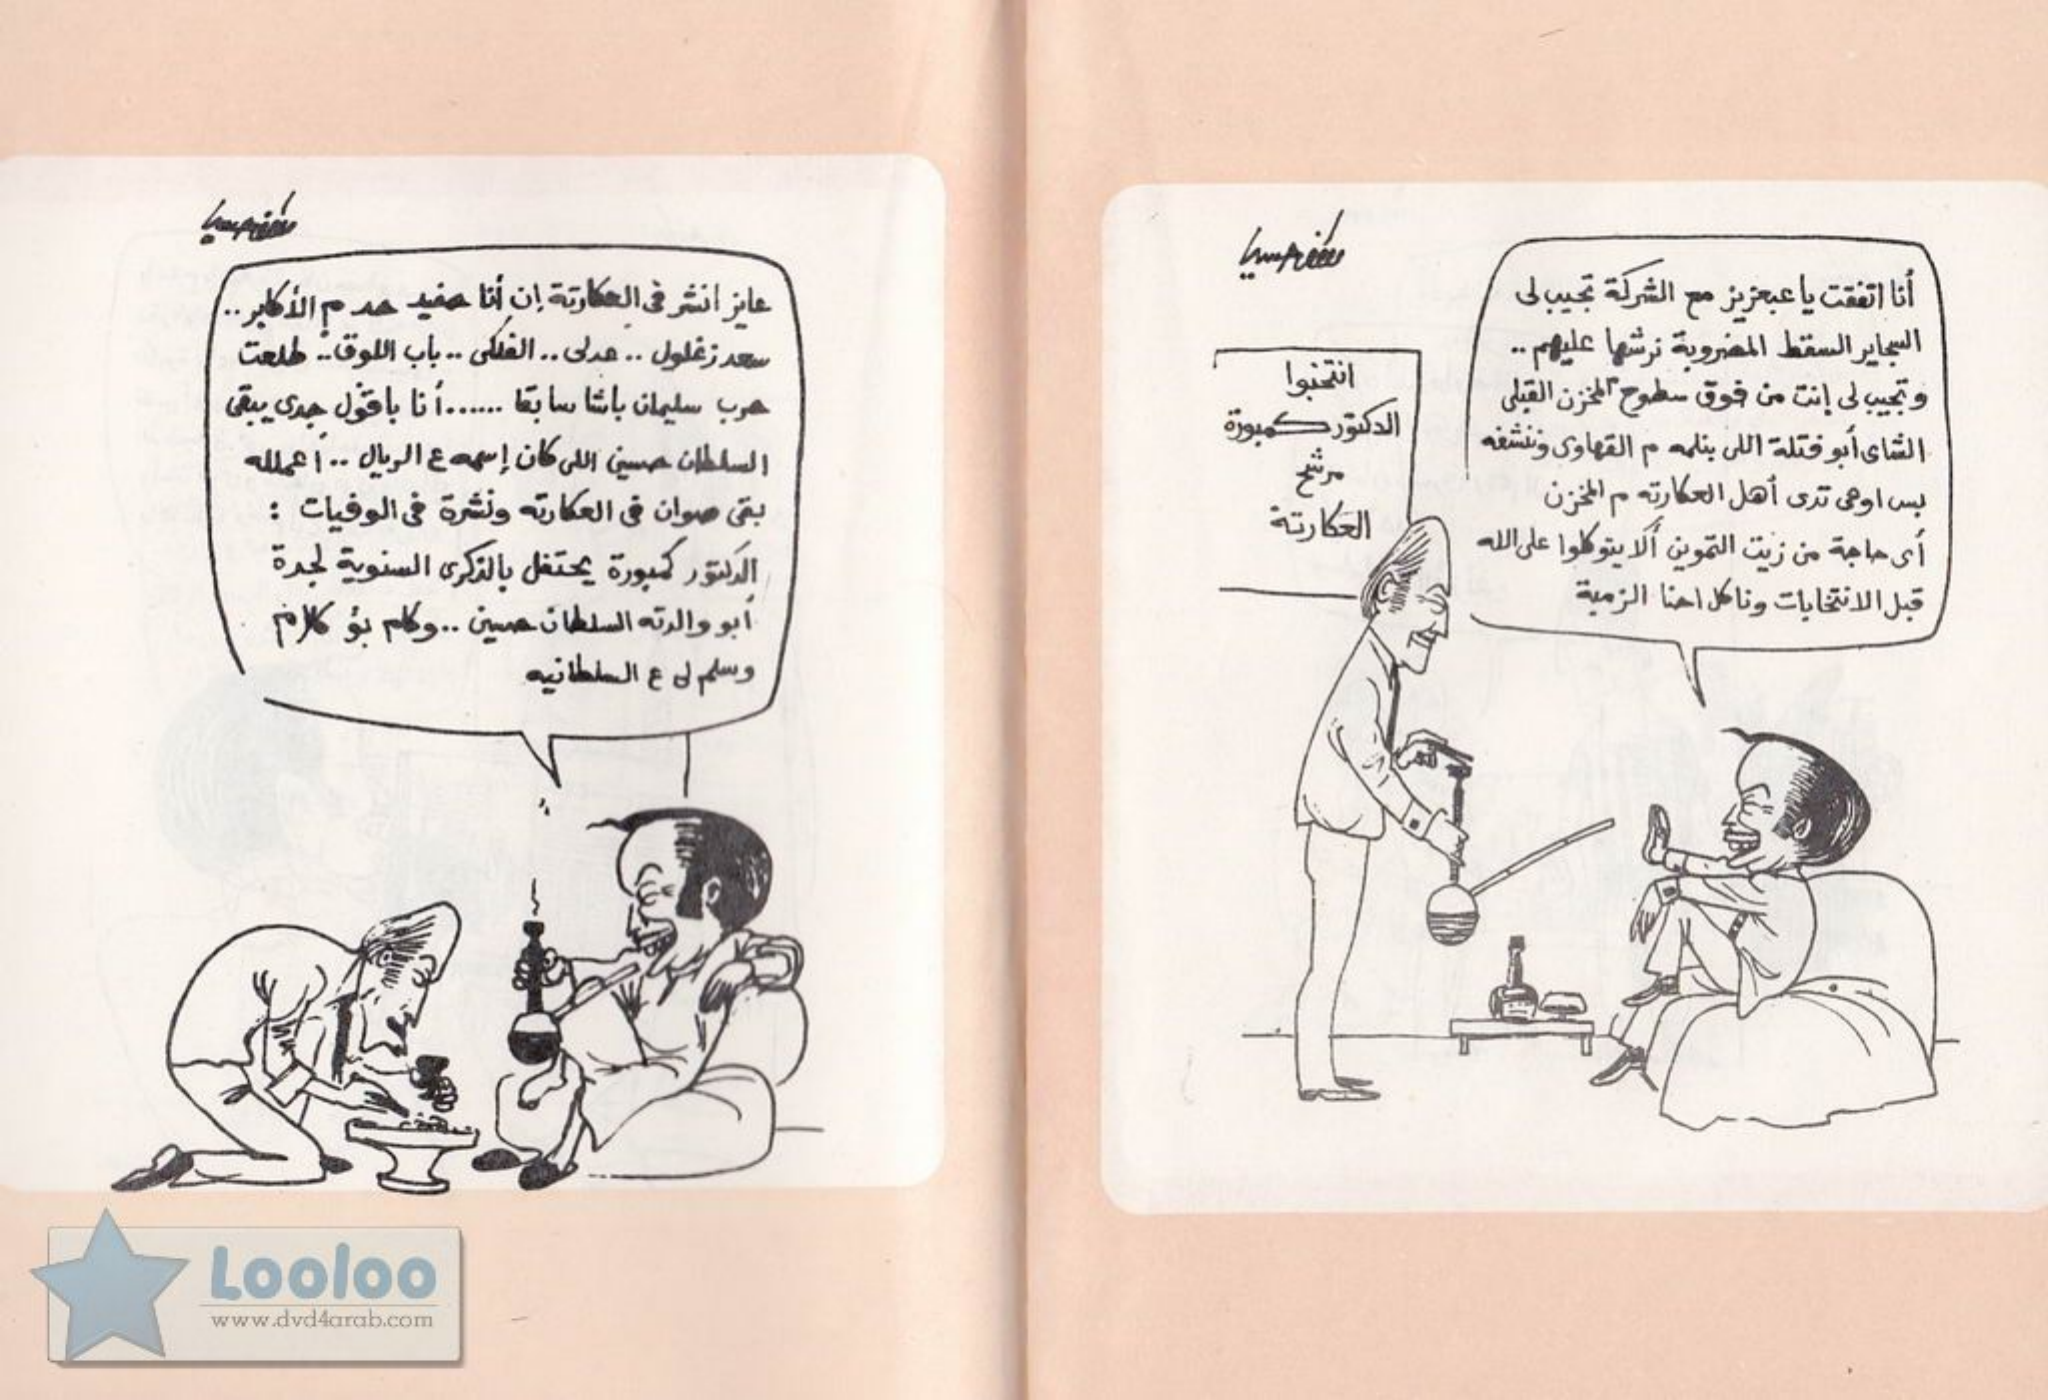 أنا اتفقت يا عبعزيز مع الشركة تجيب لى
السجاير السقط المضروبة نرشها عليهم ..
وتجيب لى إنت من فوق سطوح المخزن القبلى
الشاى أبو فتلة اللى بنلمه م القهاوى وننشفه
بس اوعى تدى أهل العكارته م المخزن
أى حاجة من زيت التموين ألا يتوكلوا على الله
قبل الانتخابات وناكل احنا الزمبة
انتخبوا
الدكتور كمبورة
مرشح
العكارتة
عايز انشر فى العكارتة إن أنا حفيد حد م الأكابر ..
سعد زغلول .. عدلى .. الفلكى .. باب اللوق .. طلعت
حرب سليمان باشا سابقا ...... أنا باقول جدى يبقى
السلطان حسين اللى كان إسمه ع الريال .. أعمله
بقى صوان فى العكارته ونشرة فى الوفيات :
الدكتور كمبورة يحتفل بالذكرى السنوية لجدة
أبو والدته السلطان حسين .. وكام بؤ كلام
وسلم لى ع السلطانيه
Looloo
www.dvd4arab.com